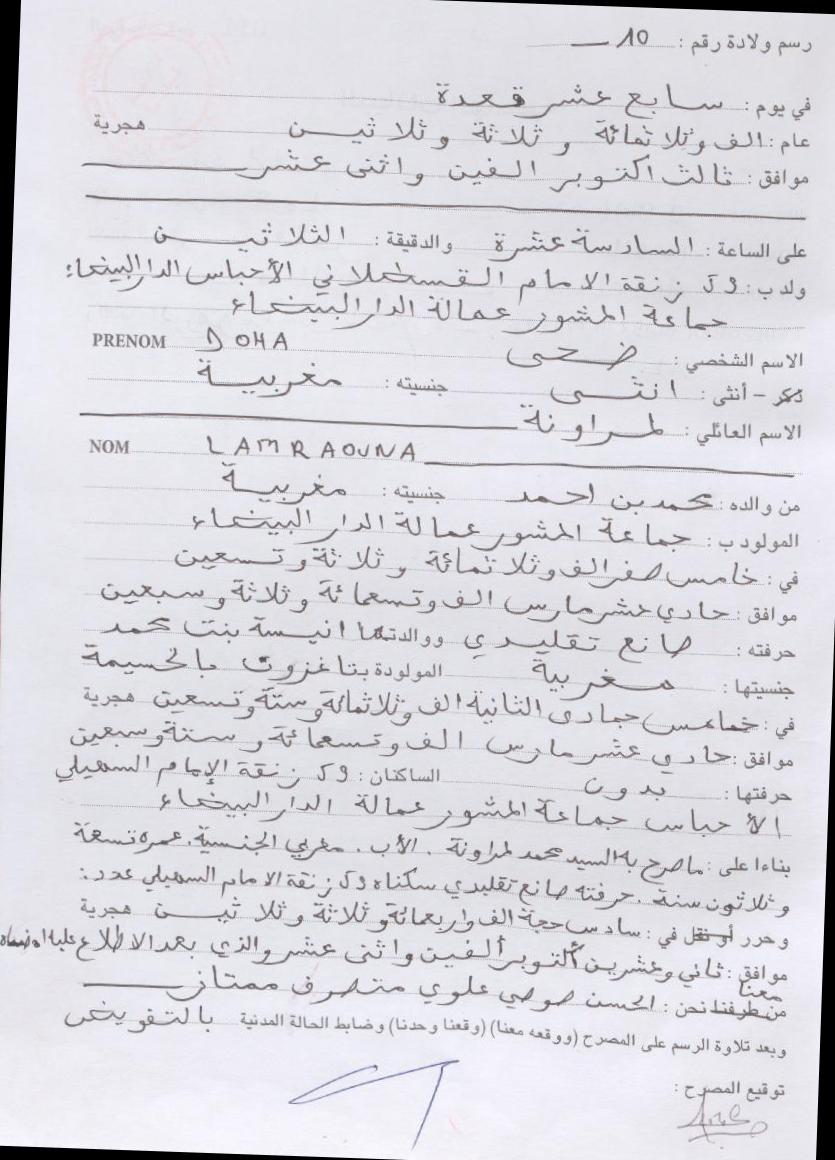 رسم ولادة رقم : 10
في يوم : سابع عشر قعدة
عام : الف وثلاثمائة وثلاثة وثلاثين هجرية
موافق : ثالث اكتوبر الفين واثنى عشر
على الساعة : السادسة عشرة والدقيقة : الثلاثين
ولد ب : زنقة الامام القسطلاني الأحباس الدار البيضاء
جماعة المشور عمالة الدار البيضاء
الاسم الشخصي : ضحى PRENOM DOHA
ذكر - أنثى : انثى جنسيته : مغربية
الاسم العائلي : لمراونة
NOM LAMRAOUNA
من والده : محمد بن احمد جنسيته : مغربية
المولود ب : جماعة المشور عمالة الدار البيضاء
في : خامس صفر الف وثلاثمائة وثلاثة وتسعين
موافق : حادي عشر مارس الف وتسعمائة وثلاثة وسبعين
حرفته : صانع تقليدي ووالدتها انيسة بنت محمد
جنسيتها : مغربية المولودة بتاغزوت بالحسيمة
في : خامس جمادى الثانية الف وثلاثمائة وستة وتسعين هجرية
موافق : حادي عشر مارس الف وتسعمائة وستة وسبعين
حرفتها : بدون الساكنان : زنقة الإمام السهيلي
الأحباس جماعة المشور عمالة الدار البيضاء
بناءا على : ماصرح به السيد محمد لمراونة . الأب . مغربي الجنسية . عمره تسعة
وثلاثون سنة . حرفته صانع تقليدي سكناه زنقة الامام السهيلي عدد :
وحرر أو نقل في : سادس حجة الف واربعمائة وثلاثة وثلاثين هجرية
موافق : ثاني وعشرين أكتوبر ألفين واثنى عشر والذي بعد الاطلاع عليه امضاه
معنا
من طرفنا نحن : الحسن علوي متصرف ممتاز
وبعد تلاوة الرسم على المصرح (ووقعه معنا) (وقعنا وحدنا) وضابط الحالة المدنية بالتفويض
توقيع المصرح :